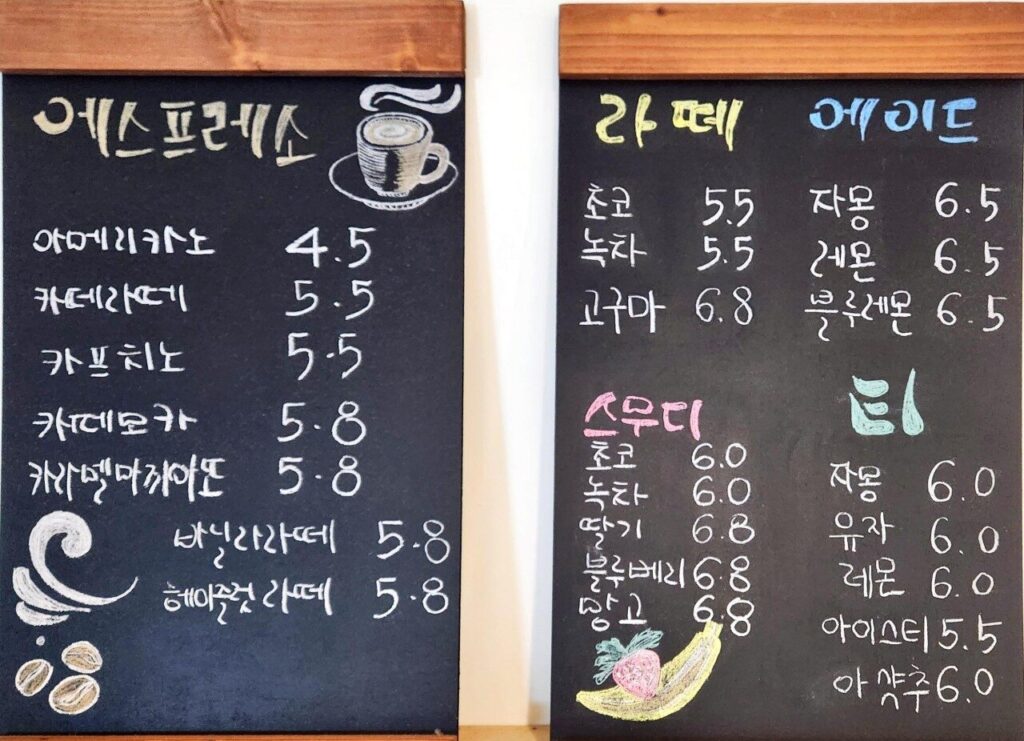 에스프레소
아메리카노 4.5
카페라떼 5.5
카프치노 5.5
카페모카 5.8
카라멜마끼아또 5.8
바닐라라떼 5.8
헤이즐럿 라떼 5.8
라떼
초코 5.5
녹차 5.5
고구마 6.8
에이드
자몽 6.5
레몬 6.5
블루레몬 6.5
스무디
초코 6.0
녹차 6.0
딸기 6.8
블루베리 6.8
망고 6.8
티
자몽 6.0
유자 6.0
레몬 6.0
아이스티 5.5
아샷추 6.0